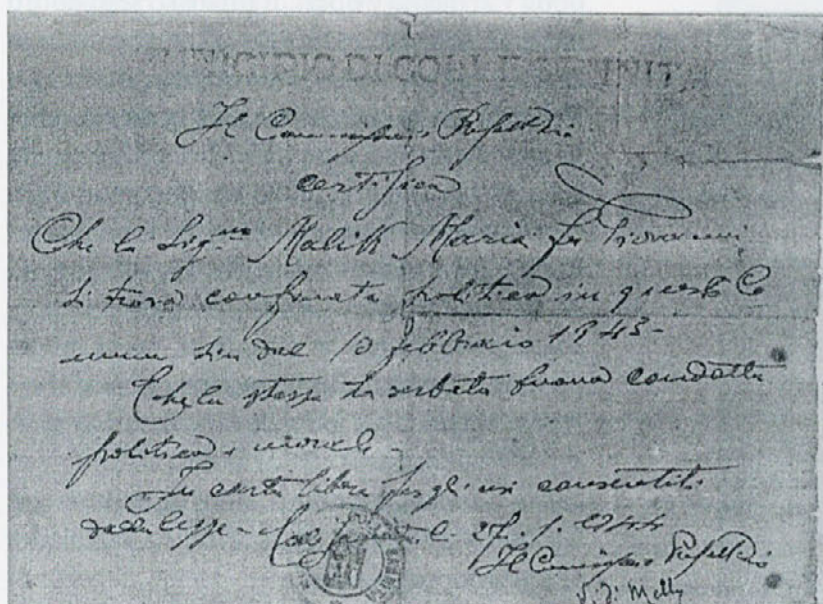 MUNICIPIO DI COLLE SANNITA
Il Commissario Prefettizio
certifica
Che la Sig.na Malik Maria fu Giovanni
si trova confinata politica in questo Co
mune sin dal 10 febbraio 1943-
Che la stessa ha serbato buona condotta
politica e morale-
In carta libera per gli usi consentiti
dalla legge - Colle Sannita li 27.1.1944
Il Commissario Prefettizio